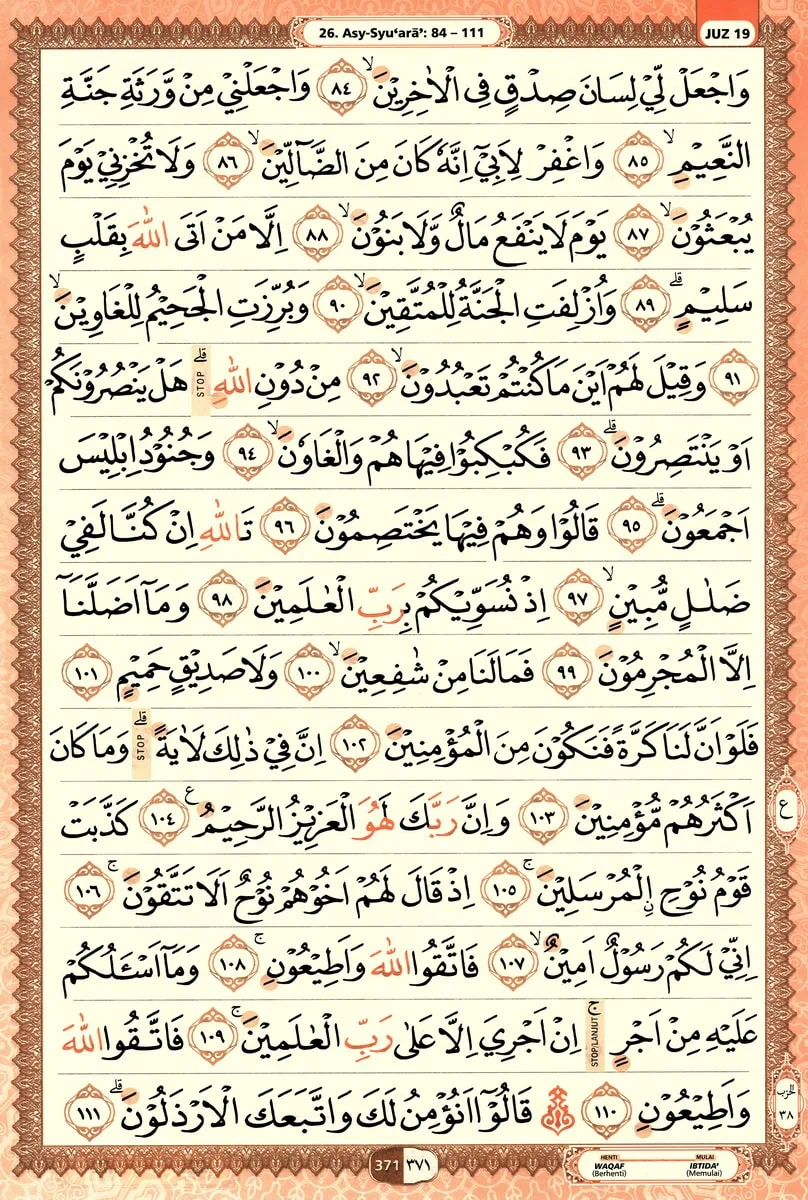 26. Asy-Syu‘arā’: 84 – 111
JUZ 19
وَاجْعَلْ لِّيْ لِسَانَ صِدْقٍ فِى الْاٰخِرِيْنَ ۙ ٨٤ وَاجْعَلْنِيْ مِنْ وَّرَثَةِ جَنَّةِ
النَّعِيْمِ ۙ ٨٥ وَاغْفِرْ لِاَبِيْٓ اِنَّهٗ كَانَ مِنَ الضَّاۤلِّيْنَ ۙ ٨٦ وَلَا تُخْزِنِيْ يَوْمَ
يُبْعَثُوْنَ ۙ ٨٧ يَوْمَ لَا يَنْفَعُ مَالٌ وَّلَا بَنُوْنَ ۙ ٨٨ اِلَّا مَنْ اَتَى اللّٰهَ بِقَلْبٍ
سَلِيْمٍ ۗ ٨٩ وَاُزْلِفَتِ الْجَنَّةُ لِلْمُتَّقِيْنَ ۙ ٩٠ وَبُرِّزَتِ الْجَحِيْمُ لِلْغَاوِيْنَ ۙ
٩١ وَقِيْلَ لَهُمْ اَيْنَ مَا كُنْتُمْ تَعْبُدُوْنَ ۙ ٩٢ مِنْ دُوْنِ اللّٰهِ ۗ STOP هَلْ يَنْصُرُوْنَكُمْ
اَوْ يَنْتَصِرُوْنَ ۗ ٩٣ فَكُبْكِبُوْا فِيْهَا هُمْ وَالْغَاوٗنَ ۙ ٩٤ وَجُنُوْدُ اِبْلِيْسَ
اَجْمَعُوْنَ ۗ ٩٥ قَالُوْا وَهُمْ فِيْهَا يَخْتَصِمُوْنَ ٩٦ تَاللّٰهِ اِنْ كُنَّا لَفِيْ
ضَلٰلٍ مُّبِيْنٍ ۙ ٩٧ اِذْ نُسَوِّيْكُمْ بِرَبِّ الْعٰلَمِيْنَ ٩٨ وَمَآ اَضَلَّنَآ
اِلَّا الْمُجْرِمُوْنَ ٩٩ فَمَا لَنَا مِنْ شٰفِعِيْنَ ۙ ١٠٠ وَلَا صَدِيْقٍ حَمِيْمٍ ١٠١
فَلَوْ اَنَّ لَنَا كَرَّةً فَنَكُوْنَ مِنَ الْمُؤْمِنِيْنَ ١٠٢ اِنَّ فِيْ ذٰلِكَ لَاٰيَةً ۗ STOP وَمَا كَانَ
اَكْثَرُهُمْ مُّؤْمِنِيْنَ ١٠٣ وَاِنَّ رَبَّكَ لَهُوَ الْعَزِيْزُ الرَّحِيْمُ ࣖ ١٠٤ كَذَّبَتْ
ع
قَوْمُ نُوْحِ ࣙالْمُرْسَلِيْنَ ۚ ١٠٥ اِذْ قَالَ لَهُمْ اَخُوْهُمْ نُوْحٌ اَلَا تَتَّقُوْنَ ۚ ١٠٦
اِنِّيْ لَكُمْ رَسُوْلٌ اَمِيْنٌ ۙ ١٠٧ فَاتَّقُوا اللّٰهَ وَاَطِيْعُوْنِ ۚ ١٠٨ وَمَآ اَسْـَٔلُكُمْ
عَلَيْهِ مِنْ اَجْرٍ ۚ STOP/LANJUT اِنْ اَجْرِيَ اِلَّا عَلٰى رَبِّ الْعٰلَمِيْنَ ۚ ١٠٩ فَاتَّقُوا اللّٰهَ
وَاَطِيْعُوْنِ ١١٠ قَالُوْٓا اَنُؤْمِنُ لَكَ وَاتَّبَعَكَ الْاَرْذَلُوْنَ ۗ ١١١
الحزب
٣٨
371 ٣٧١
HENTI WAQAF (Berhenti)
MULAI IBTIDA' (Memulai)